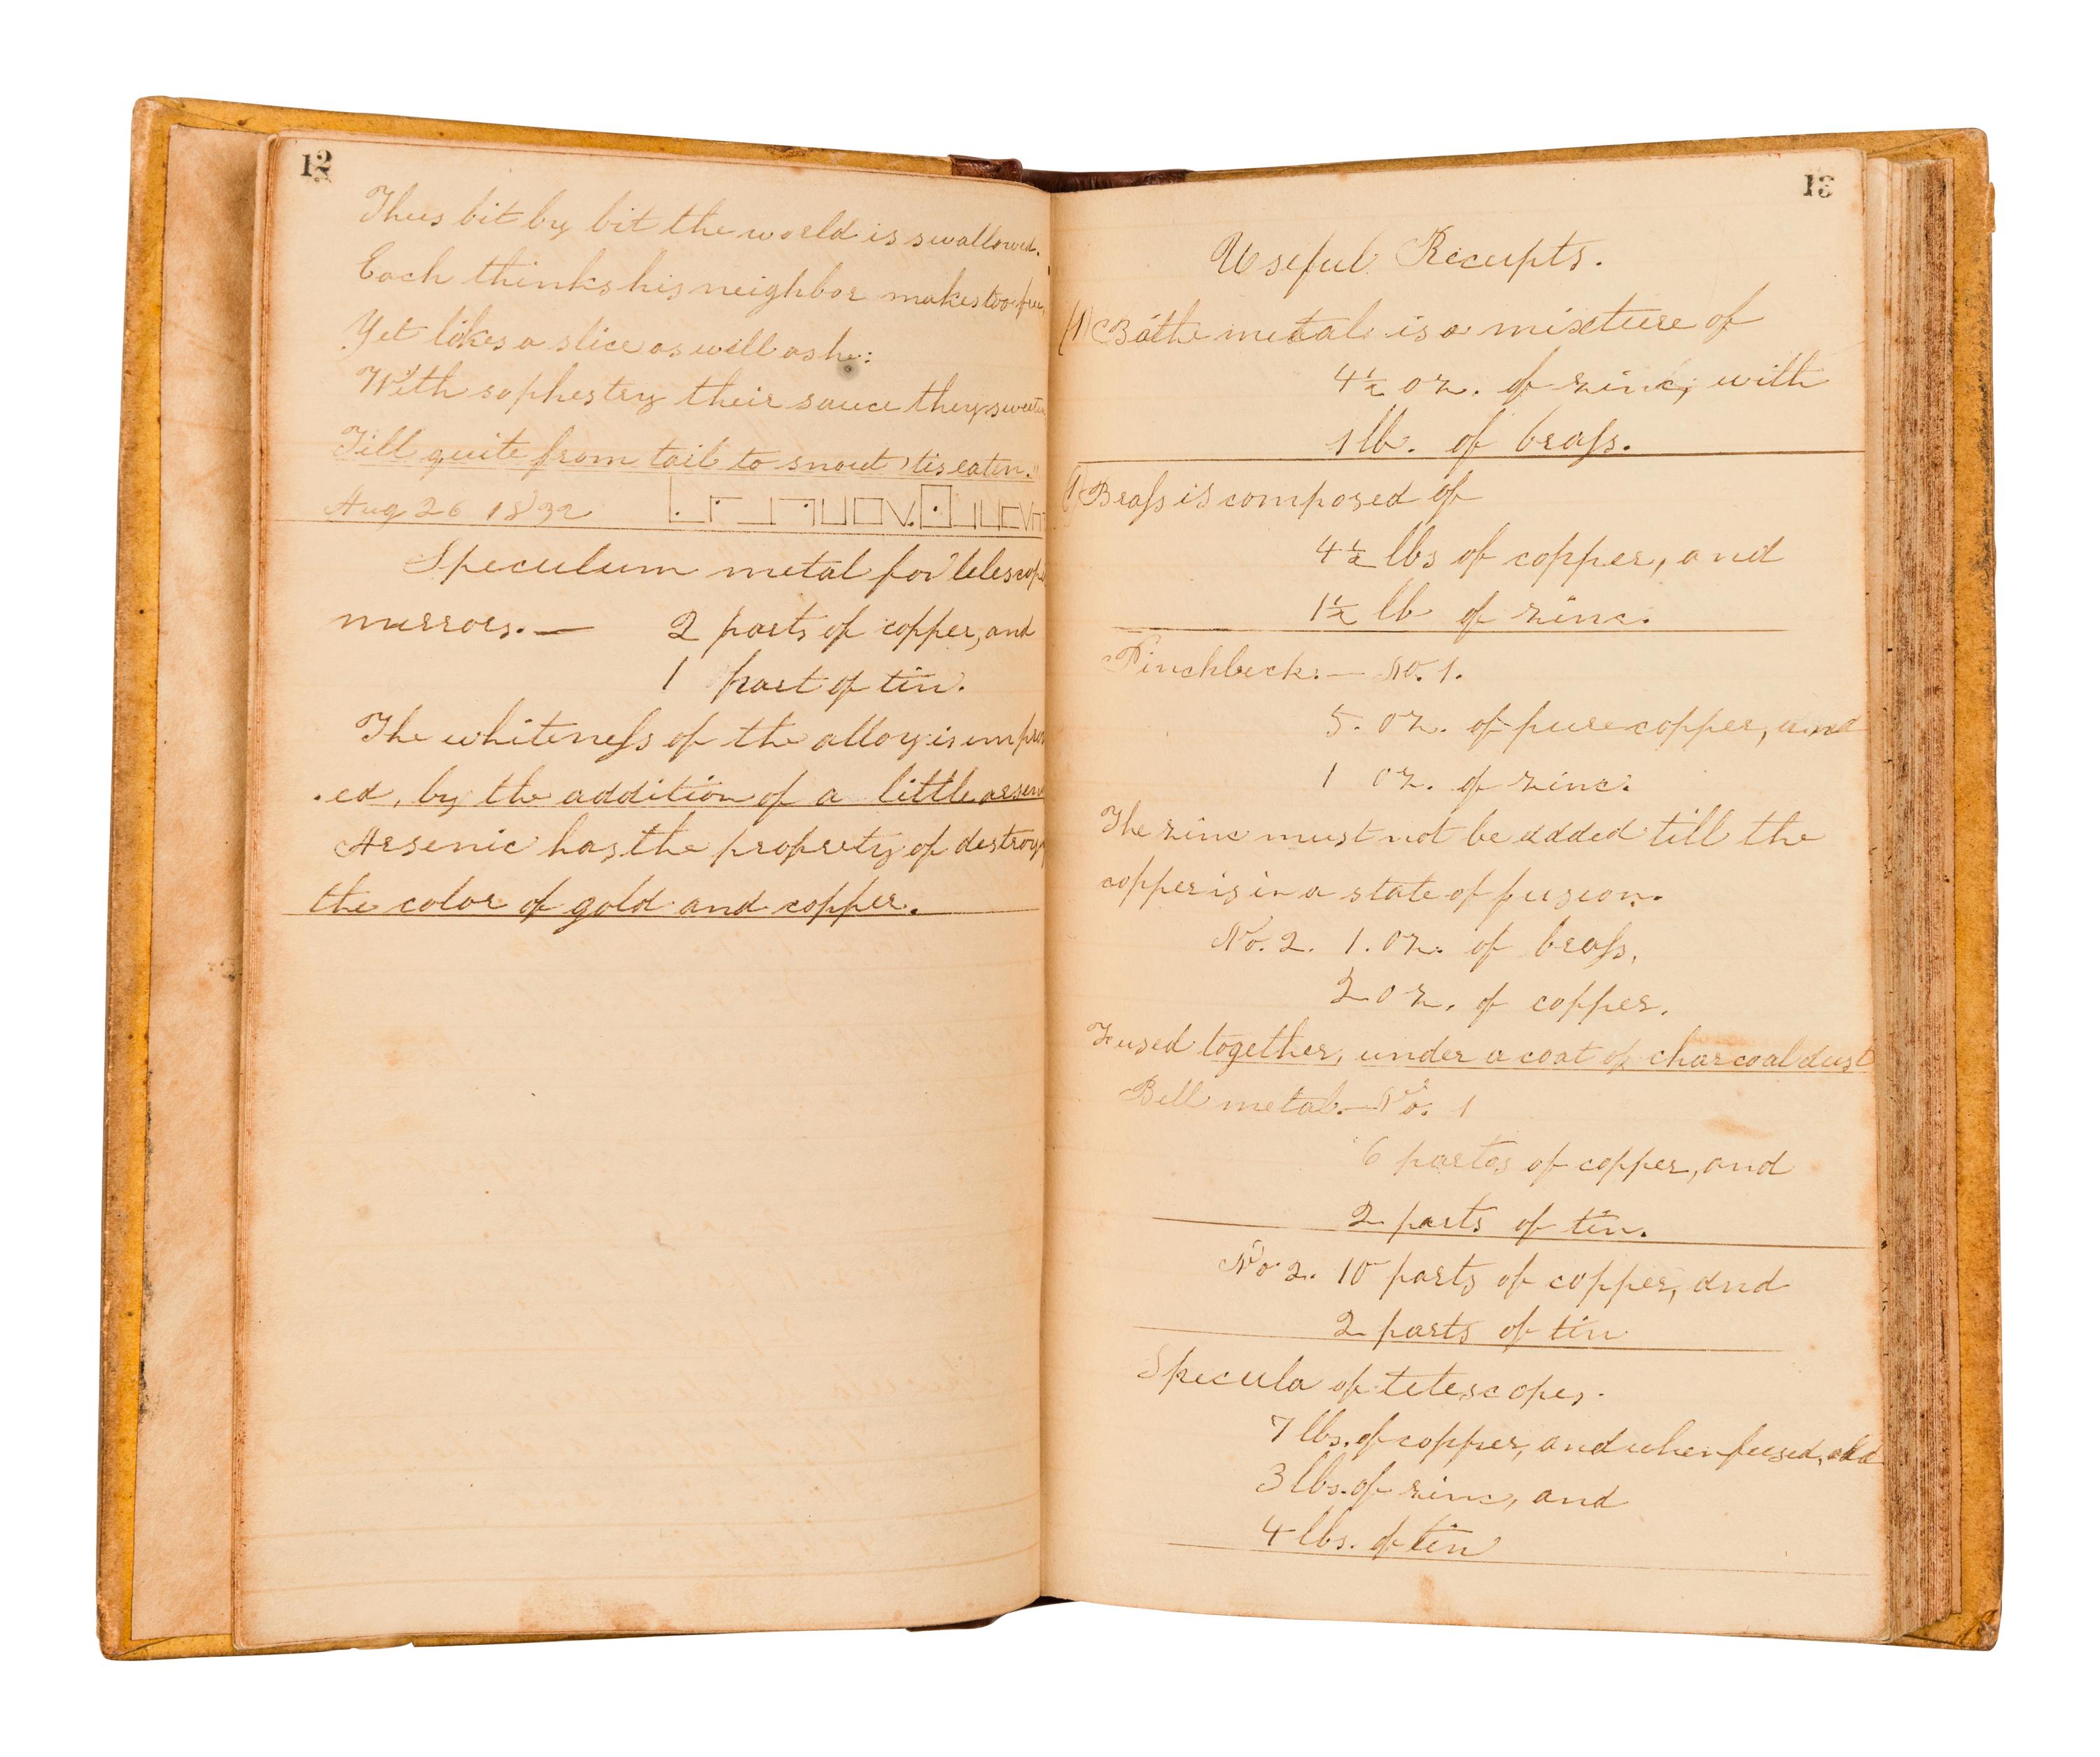 12
Thus bit by bit the world is swallowed.
Each thinks his neighbor makes too free,
Yet likes a slice as well as he:
With sophestry their sauce they sweeten
Till quite from tail to snout 'tis eaten."
Aug 26 1832
Speculum metal for telescope
mirrors.— 2 parts of copper, and
1 part of tin.
The whiteneſs of the alloy is improv
.ed, by the addition of a little arsen
Arsenic has the proprety of destroy
the color of gold and copper.
13
Useful Receipts.
(1) Bathe metal is a mixture of
4½ oz. of zinc, with
1 lb. of braſs.
Braſs is composed of
4½ lbs of copper, and
1½ lb of zinc.
Pinchbeck.— No. 1.
5. oz. of pure copper, and
1 oz. of zinc.
The zinc must not be added till the
copper is in a state of fusion.
No. 2. 1. oz. of braſs,
2 oz. of copper.
Fused together, under a coat of charcoal dust
Bell metal.—No. 1
6 partos of copper, and
2 parts of tin.
No 2. 10 parts of copper, and
2 parts of tin
Specula of telescopes.
7 lbs. of copper, and when fused, add
3 lbs. of zinc, and
4 lbs. of tin